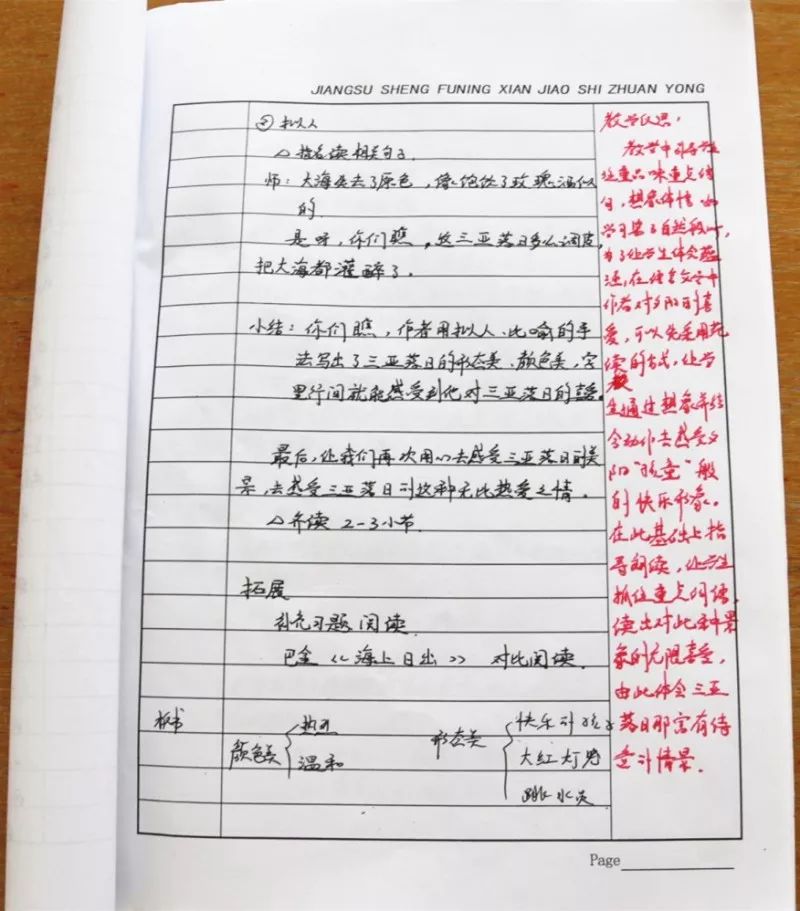 JIANGSU SHENG FUNING XIAN JIAO SHI ZHUAN YONG
② 拟人
△指名读相关句子.
师：大海失去了原色，像饱饮了玫瑰酒似
的.
是呀，你们瞧，这三亚落日多么调皮,
把大海都灌醉了.
小结：你们瞧，作者用拟人、比喻的手
法写出了三亚落日的形态美、颜色美，字
里行间就能感受到他对三亚落日的喜爱.
最后，让我们再次用心去感受三亚落日的美
景，去感受三亚落日的这种无比热爱之情.
△齐读 2-3小节.
拓展
补充习题 阅读.
巴金《海上日出》 对比阅读.
板书
颜色美
热烈
温和
形态美
快乐的孩子
大红灯笼
跳水员
教学反思：
教学中引导学生
注重品味重点语
句，想象体情.如
学习第3自然段时,
为了让学生体会蕴
在语言文字中
作者对夕阳的喜
爱，可以先采用范
读的方式，让学
生通过想象并结
合动作去感受夕
阳"孩童"般
的快乐形象。
在此基础上指
导朗读，让学生
抓住重点词语,
读出对此种景
象的无限喜爱,
由此体会三亚
落日那富有诗
意的情景.
Page